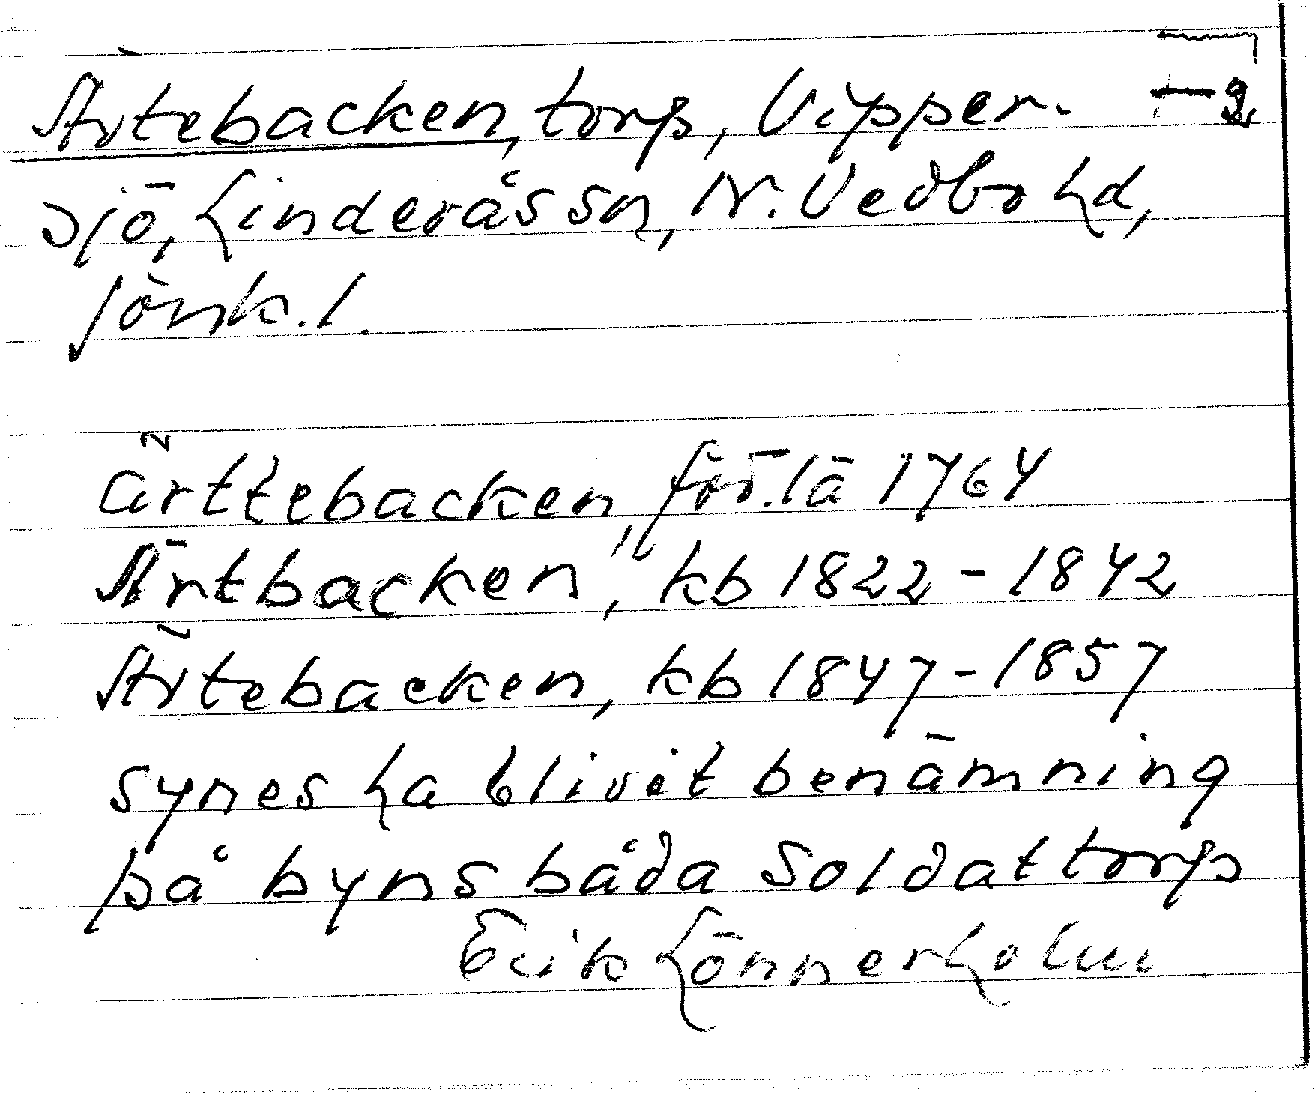 Ärtebacken, torp, Vipper- – 2
sjö, Linderås sn, N. Vedbo hd,
Jönk. l.
ärttebacken, för.lä 1764
Ärtbacken, kb 1822 - 1842
Ärtebacken, kb 1847 - 1857
synes ha blivit benämning
på byns båda soldattorp
Erik Lönnerholm